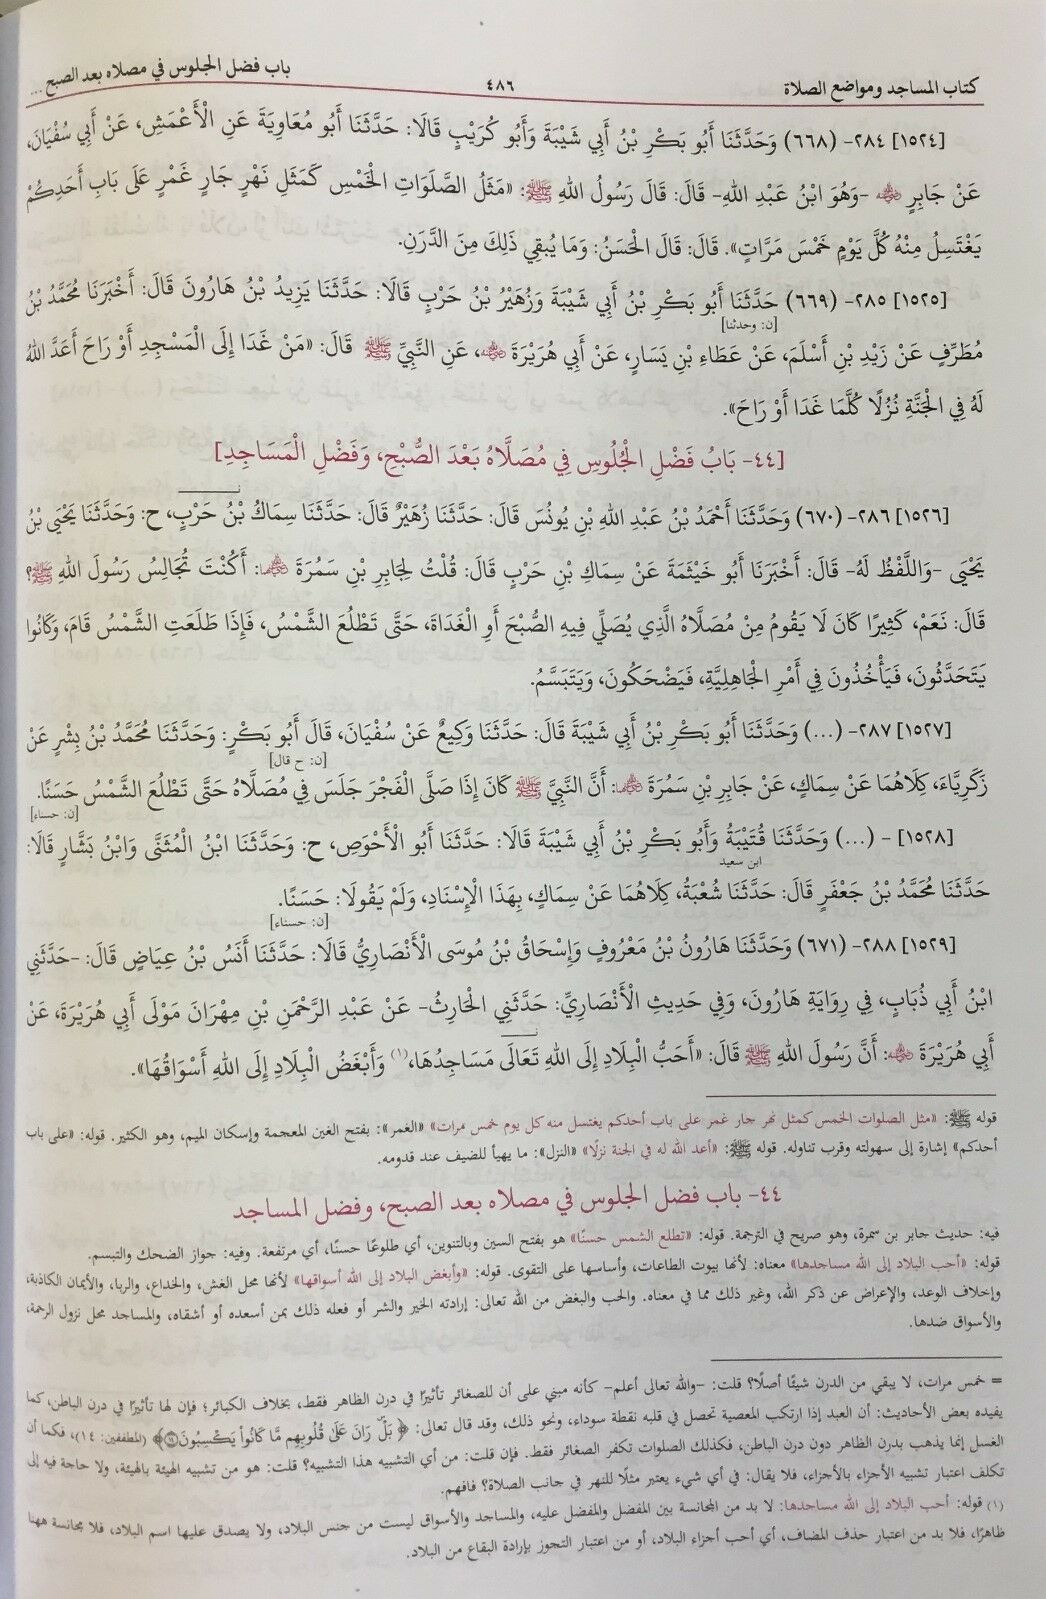 كتاب المساجد ومواضع الصلاة ٤٨٦ باب فضل الجلوس في مصلاه بعد الصبح ...
[١٥٢٤] ٢٨٤- (٦٦٨) وَحَدَّثَنَا أَبُو بَكْرِ بْنُ أَبِي شَيْبَةَ وَأَبُو كُرَيْبٍ قَالَا: حَدَّثَنَا أَبُو مُعَاوِيَةَ عَنِ الْأَعْمَشِ، عَنْ أَبِي سُفْيَانَ،
عَنْ جَابِرٍ ﵁ -وَهُوَ ابْنُ عَبْدِ اللهِ- قَالَ: قَالَ رَسُولُ اللهِ ﷺ: «مَثَلُ الصَّلَوَاتِ الْخَمْسِ كَمَثَلِ نَهْرٍ جَارٍ غَمْرٍ عَلَى بَابِ أَحَدِكُمْ
يَغْتَسِلُ مِنْهُ كُلَّ يَوْمٍ خَمْسَ مَرَّاتٍ». قَالَ: قَالَ الْحَسَنُ: وَمَا يُبْقِي ذَلِكَ مِنَ الدَّرَنِ.
[١٥٢٥] ٢٨٥- (٦٦٩) حَدَّثَنَا أَبُو بَكْرِ بْنُ أَبِي شَيْبَةَ وَزُهَيْرُ بْنُ حَرْبٍ قَالَا: حَدَّثَنَا يَزِيدُ بْنُ هَارُونَ قَالَ: أَخْبَرَنَا مُحَمَّدُ بْنُ
[ن: وحدثنا]
مُطَرِّفٍ عَنْ زَيْدِ بْنِ أَسْلَمَ، عَنْ عَطَاءِ بْنِ يَسَارٍ، عَنْ أَبِي هُرَيْرَةَ ﵁، عَنِ النَّبِيِّ ﷺ قَالَ: «مَنْ غَدَا إِلَى الْمَسْجِدِ أَوْ رَاحَ أَعَدَّ اللهُ
لَهُ فِي الْجَنَّةِ نُزُلًا كُلَّمَا غَدَا أَوْ رَاحَ».
[٤٤- بَابُ فَضْلِ الْجُلُوسِ فِي مُصَلَّاهُ بَعْدَ الصُّبْحِ، وَفَضْلِ الْمَسَاجِدِ]
[١٥٢٦] ٢٨٦- (٦٧٠) وَحَدَّثَنَا أَحْمَدُ بْنُ عَبْدِ اللهِ بْنِ يُونُسَ قَالَ: حَدَّثَنَا زُهَيْرٌ قَالَ: حَدَّثَنَا سِمَاكُ بْنُ حَرْبٍ، ح: وَحَدَّثَنَا يَحْيَى بْنُ
يَحْيَى -وَاللَّفْظُ لَهُ- قَالَ: أَخْبَرَنَا أَبُو خَيْثَمَةَ عَنْ سِمَاكِ بْنِ حَرْبٍ قَالَ: قُلْتُ لِجَابِرِ بْنِ سَمُرَةَ: أَكُنْتَ تُجَالِسُ رَسُولَ اللهِ ﷺ؟
قَالَ: نَعَمْ، كَثِيرًا كَانَ لَا يَقُومُ مِنْ مُصَلَّاهُ الَّذِي يُصَلِّي فِيهِ الصُّبْحَ أَوِ الْغَدَاةَ، حَتَّى تَطْلُعَ الشَّمْسُ، فَإِذَا طَلَعَتِ الشَّمْسُ قَامَ، وَكَانُوا
يَتَحَدَّثُونَ، فَيَأْخُذُونَ فِي أَمْرِ الْجَاهِلِيَّةِ، فَيَضْحَكُونَ، وَيَتَبَسَّمُ.
[١٥٢٧] ٢٨٧- (...) وَحَدَّثَنَا أَبُو بَكْرِ بْنُ أَبِي شَيْبَةَ قَالَ: حَدَّثَنَا وَكِيعٌ عَنْ سُفْيَانَ، قَالَ أَبُو بَكْرٍ: وَحَدَّثَنَا مُحَمَّدُ بْنُ بِشْرٍ عَنْ
[ن: ح قال]
زَكَرِيَّاءَ، كِلَاهُمَا عَنْ سِمَاكٍ، عَنْ جَابِرِ بْنِ سَمُرَةَ: أَنَّ النَّبِيَّ ﷺ كَانَ إِذَا صَلَّى الْفَجْرَ جَلَسَ فِي مُصَلَّاهُ حَتَّى تَطْلُعَ الشَّمْسُ حَسَنًا.
[ن: حسناء]
[١٥٢٨] - (...) وَحَدَّثَنَا قُتَيْبَةُ وَأَبُو بَكْرِ بْنُ أَبِي شَيْبَةَ قَالَا: حَدَّثَنَا أَبُو الْأَحْوَصِ، ح: وَحَدَّثَنَا ابْنُ الْمُثَنَّى وَابْنُ بَشَّارٍ قَالَا:
ابن سعيد
حَدَّثَنَا مُحَمَّدُ بْنُ جَعْفَرٍ قَالَ: حَدَّثَنَا شُعْبَةُ، كِلَاهُمَا عَنْ سِمَاكٍ، بِهَذَا الْإِسْنَادِ، وَلَمْ يَقُولَا: حَسَنًا.
[ن: حسناء]
[١٥٢٩] ٢٨٨- (٦٧١) وَحَدَّثَنَا هَارُونُ بْنُ مَعْرُوفٍ وَإِسْحَاقُ بْنُ مُوسَى الْأَنْصَارِيُّ قَالَا: حَدَّثَنَا أَنَسُ بْنُ عِيَاضٍ قَالَ: -حَدَّثَنِي
ابْنُ أَبِي ذُبَابٍ، فِي رِوَايَةِ هَارُونَ، وَفِي حَدِيثِ الْأَنْصَارِيِّ: حَدَّثَنِي الْحَارِثُ- عَنْ عَبْدِ الرَّحْمَنِ بْنِ مِهْرَانَ مَوْلَى أَبِي هُرَيْرَةَ، عَنْ
أَبِي هُرَيْرَةَ ﵁: أَنَّ رَسُولَ اللهِ ﷺ قَالَ: «أَحَبُّ الْبِلَادِ إِلَى اللهِ تَعَالَى مَسَاجِدُهَا،(١) وَأَبْغَضُ الْبِلَادِ إِلَى اللهِ أَسْوَاقُهَا».
قوله ﷺ: «مثل الصلوات الخمس كمثل نهر جار غمر على باب أحدكم يغتسل منه كل يوم خمس مرات» «الغمر»: بفتح الغين المعجمة وإسكان الميم، وهو الكثير. قوله: «على باب
أحدكم» إشارة إلى سهولته وقرب تناوله. قوله ﷺ: «أعد الله له في الجنة نزلًا» «النزل»: ما يهيأ للضيف عند قدومه.
٤٤- باب فضل الجلوس في مصلاه بعد الصبح، وفضل المساجد
فيه: حديث جابر بن سمرة، وهو صريح في الترجمة. قوله: «تطلع الشمس حسنًا» هو بفتح السين وبالتنوين، أي طلوعًا حسنًا، أي مرتفعة. وفيه: جواز الضحك والتبسم.
قوله: «أحب البلاد إلى الله مساجدها» معناه: لأنها بيوت الطاعات، وأساسها على التقوى. قوله: «وأبغض البلاد إلى الله أسواقها» لأنها محل الغش، والخداع، والربا، والأيمان الكاذبة،
وإخلاف الوعد، والإعراض عن ذكر الله، وغير ذلك مما في معناه. والحب والبغض من الله تعالى: إرادته الخير والشر أو فعله ذلك بمن أسعده أو أشقاه، والمساجد محل نزول الرحمة،
والأسواق ضدها.
= خمس مرات، لا يبقي من الدرن شيئًا أصلًا؟ قلت: -والله تعالى أعلم- كأنه مبني على أن للصغائر تأثيرًا في درن الظاهر فقط، بخلاف الكبائر؛ فإن لها تأثيرًا في درن الباطن، كما
يفيده بعض الأحاديث: أن العبد إذا ارتكب المعصية تحصل في قلبه نقطة سوداء، ونحو ذلك، وقد قال تعالى: ﴿بَلْ رَانَ عَلَىٰ قُلُوبِهِم مَّا كَانُواْ يَكْسِبُونَ ١٤﴾ (المطففين: ١٤)، فكما أن
الغسل إنما يذهب بدرن الظاهر دون درن الباطن، فكذلك الصلوات تكفر الصغائر فقط. فإن قلت: من أي التشبيه هذا التشبيه؟ قلت: هو من تشبيه الهيئة بالهيئة، ولا حاجة فيه إلى
تكلف اعتبار تشبيه الأجزاء بالأجزاء، فلا يقال: في أي شيء يعتبر مثلًا للنهر في جانب الصلاة؟ فافهم.
(١) قوله: أحب البلاد إلى الله مساجدها: لا بد من المجانسة بين المفضل والمفضل عليه، والمساجد والأسواق ليست من جنس البلاد، ولا يصدق عليها اسم البلاد، فلا مجانسة ههنا
ظاهرًا، فلا بد من اعتبار حذف المضاف، أي أحب أجزاء البلاد، أو من اعتبار التجوز بإرادة البقاع من البلاد.